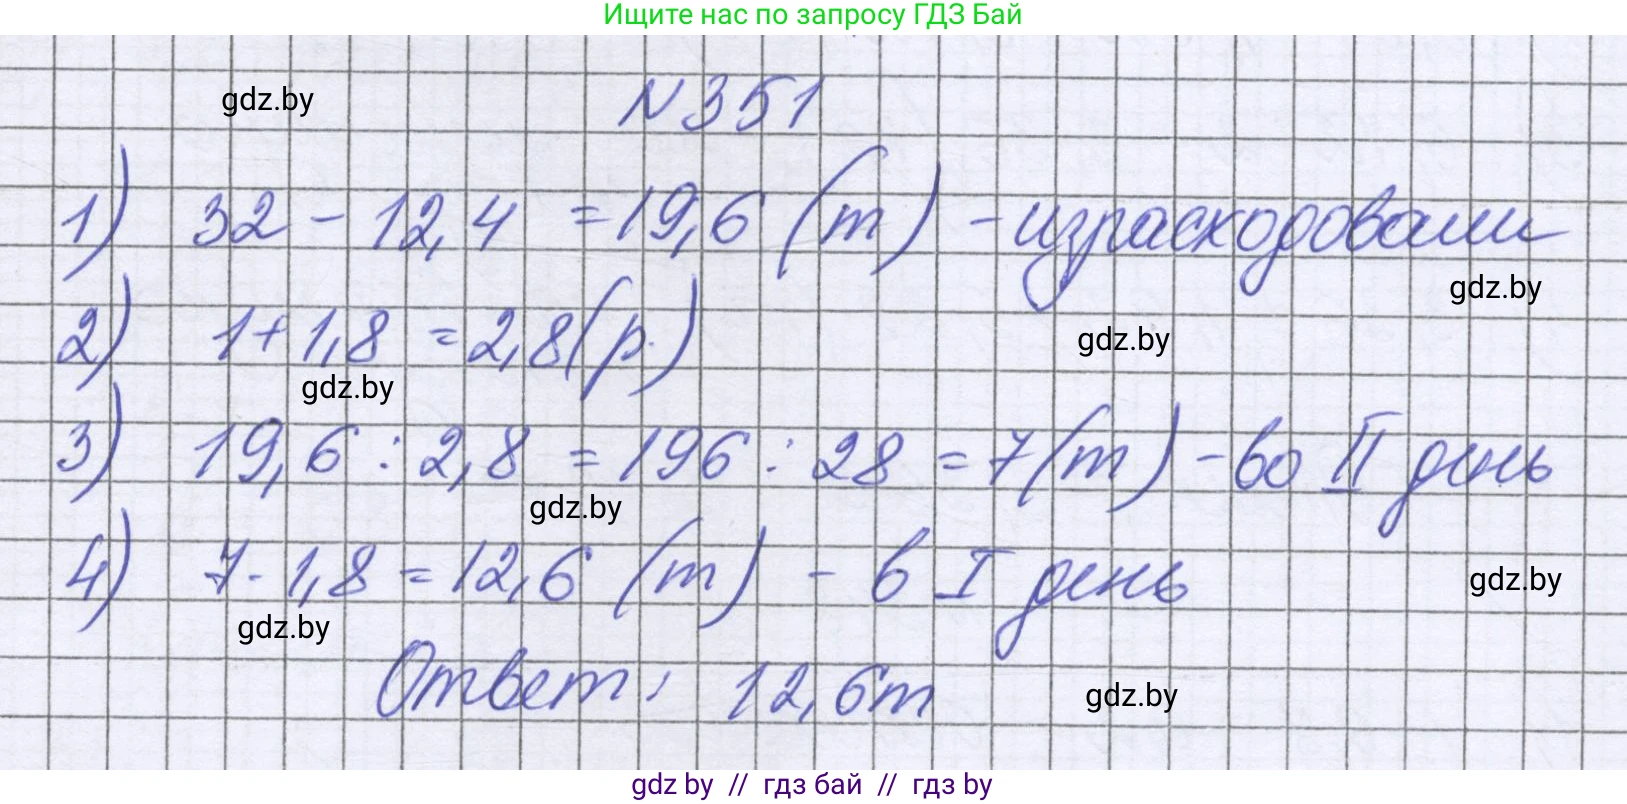 Ищите нас по запросу ГДЗ Бай
gdz.by
N 351
1) 32 - 12,4 = 19,6 (т) - израсходовали
gdz.by
2) 1 + 1,8 = 2,8 (р.)
gdz.by
gdz.by
3) 19,6 : 2,8 = 196 : 28 = 7 (т) - во II день
gdz.by
4) 7 · 1,8 = 12,6 (т) - в I день
gdz.by
gdz.by
Ответ: 12,6т
gdz.by
gdz by // гдз бай // гдз by